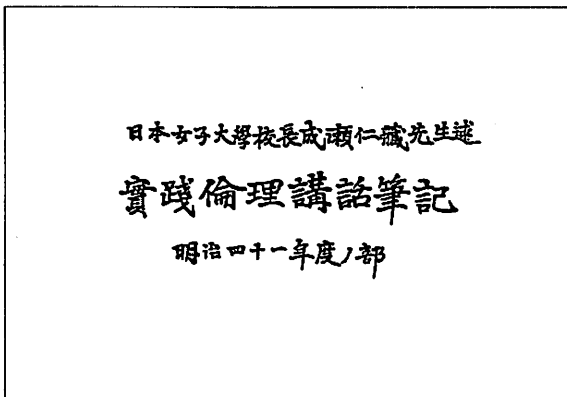 日本女子大學校長成瀬仁藏先生述
實踐倫理講話筆記
明治四十一年度ノ部